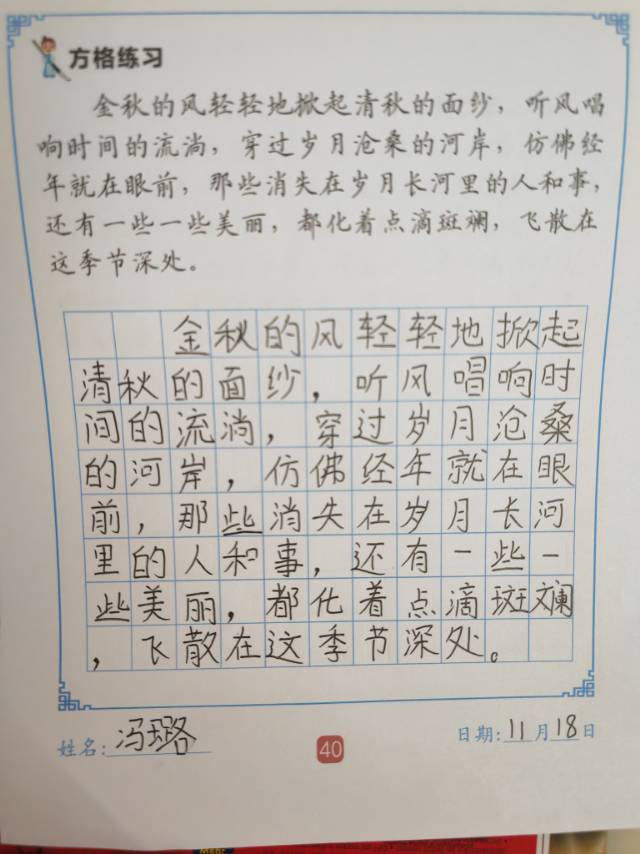 方格练习
金秋的风轻轻地掀起清秋的面纱，听风唱
响时间的流淌，穿过岁月沧桑的河岸，仿佛经
年就在眼前，那些消失在岁月长河里的人和事，
还有一些一些美丽，都化着点滴斑斓，飞散在
这季节深处。
金秋的风轻轻地掀起
清秋的面纱，听风唱响时
间的流淌，穿过岁月沧桑
的河岸，仿佛经年就在眼
前，那些消失在岁月长河
里的人和事，还有一些一
些美丽，都化着点滴斑斓
，飞散在这季节深处。
姓名：冯璐 40 日期：11月18日